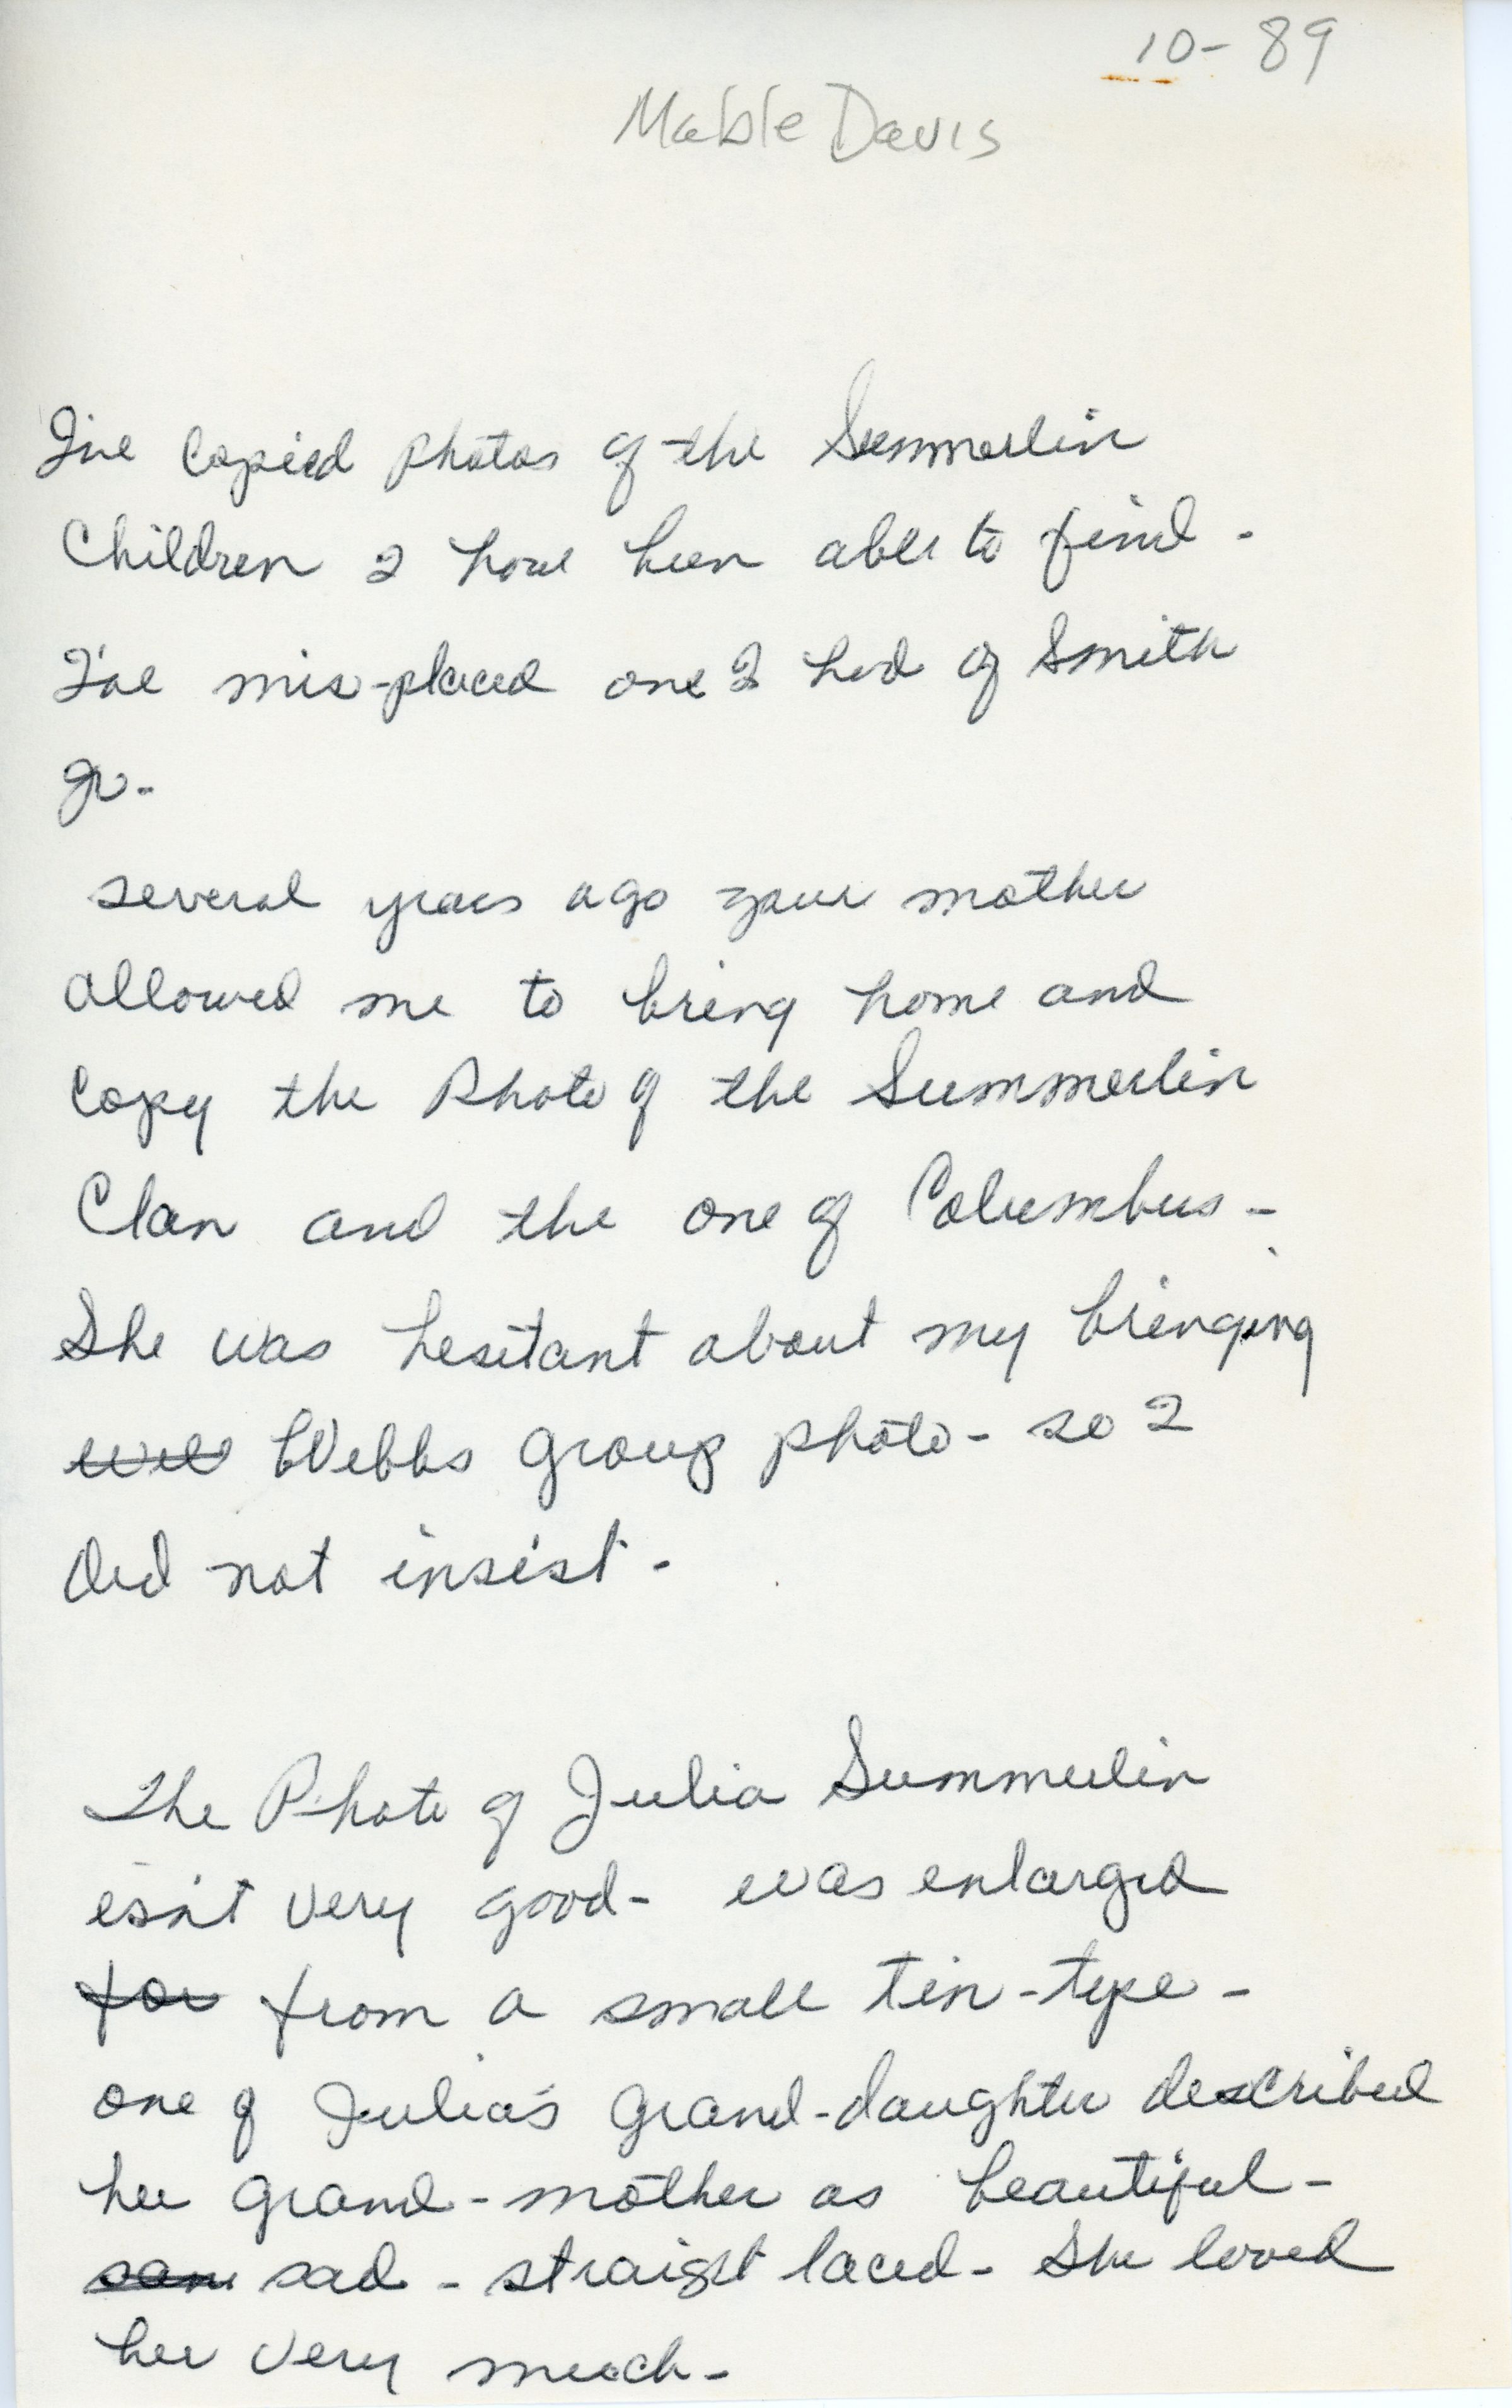 10-89
Mable Davis
I've copied photos of the Summerlin
Children I have been able to find -
I've mis-placed one I had of Smith
Jr-
several years ago your mother
allowed me to bring home and
copy the Photo of the Summerlin
Clan and the one of Columbus -
She was hesitant about my bringing
Webbs group photo - so I
did not insist -
The Photo of Julia Summerlin
isn't very good - was enlarged
for from a small tin-type -
one of Julia's grand-daughter described
her grand-mother as beautiful -
sad - straight laced - She loved
her very much -